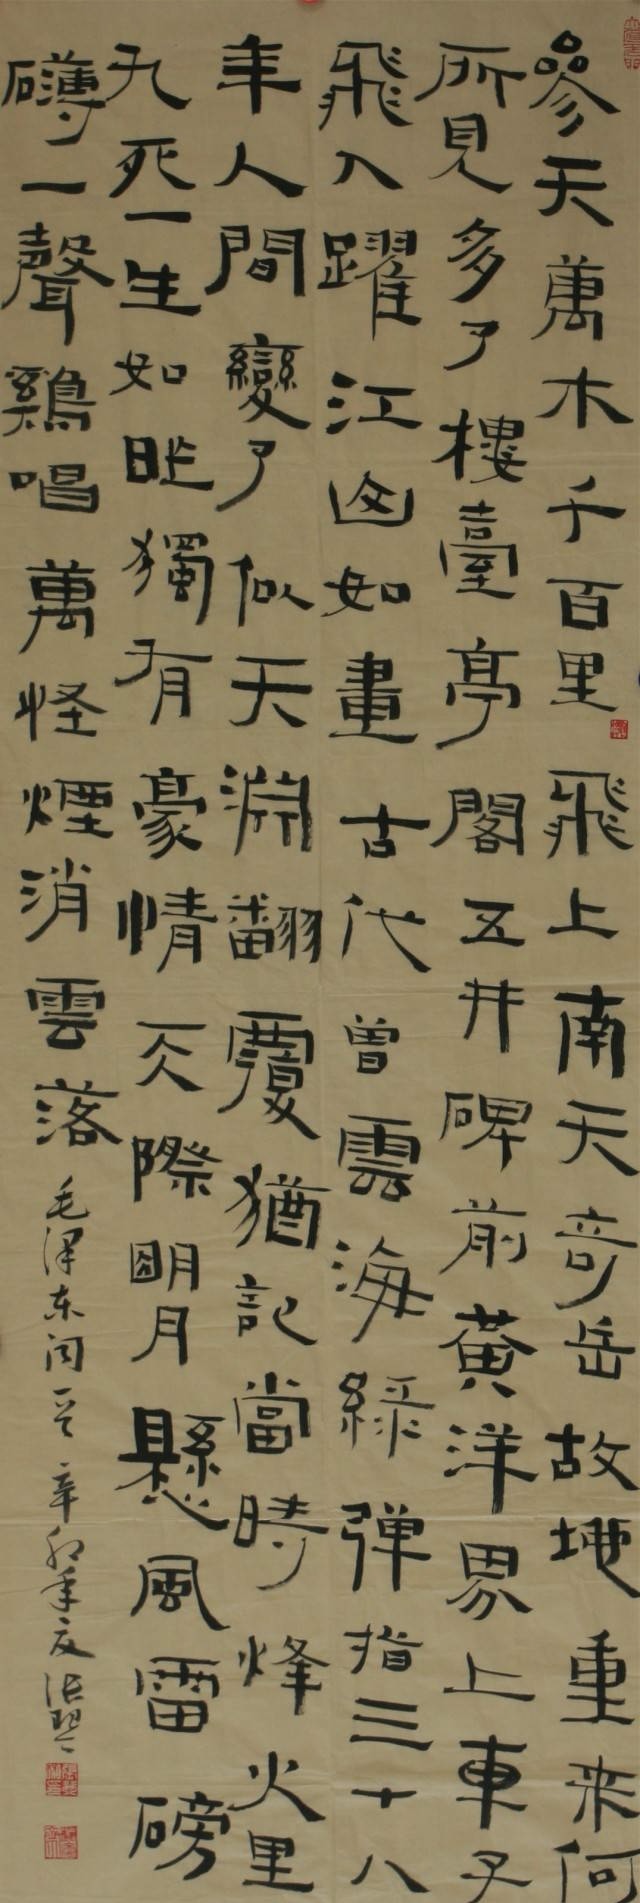 參天萬木千百里飛上南天奇岳故地重來何
所見多了樓臺亭閣五井碑前黃洋界上車子
飛入躍江山如畫古代曾雲海綠弹指三十八
年人間變了似天淵翻覆猶記當時烽火里
九死一生如昨獨有豪情天際明月懸風雷磅
礴一聲鷄唱萬怪煙消雲落 毛泽东词一首 辛卯年夏